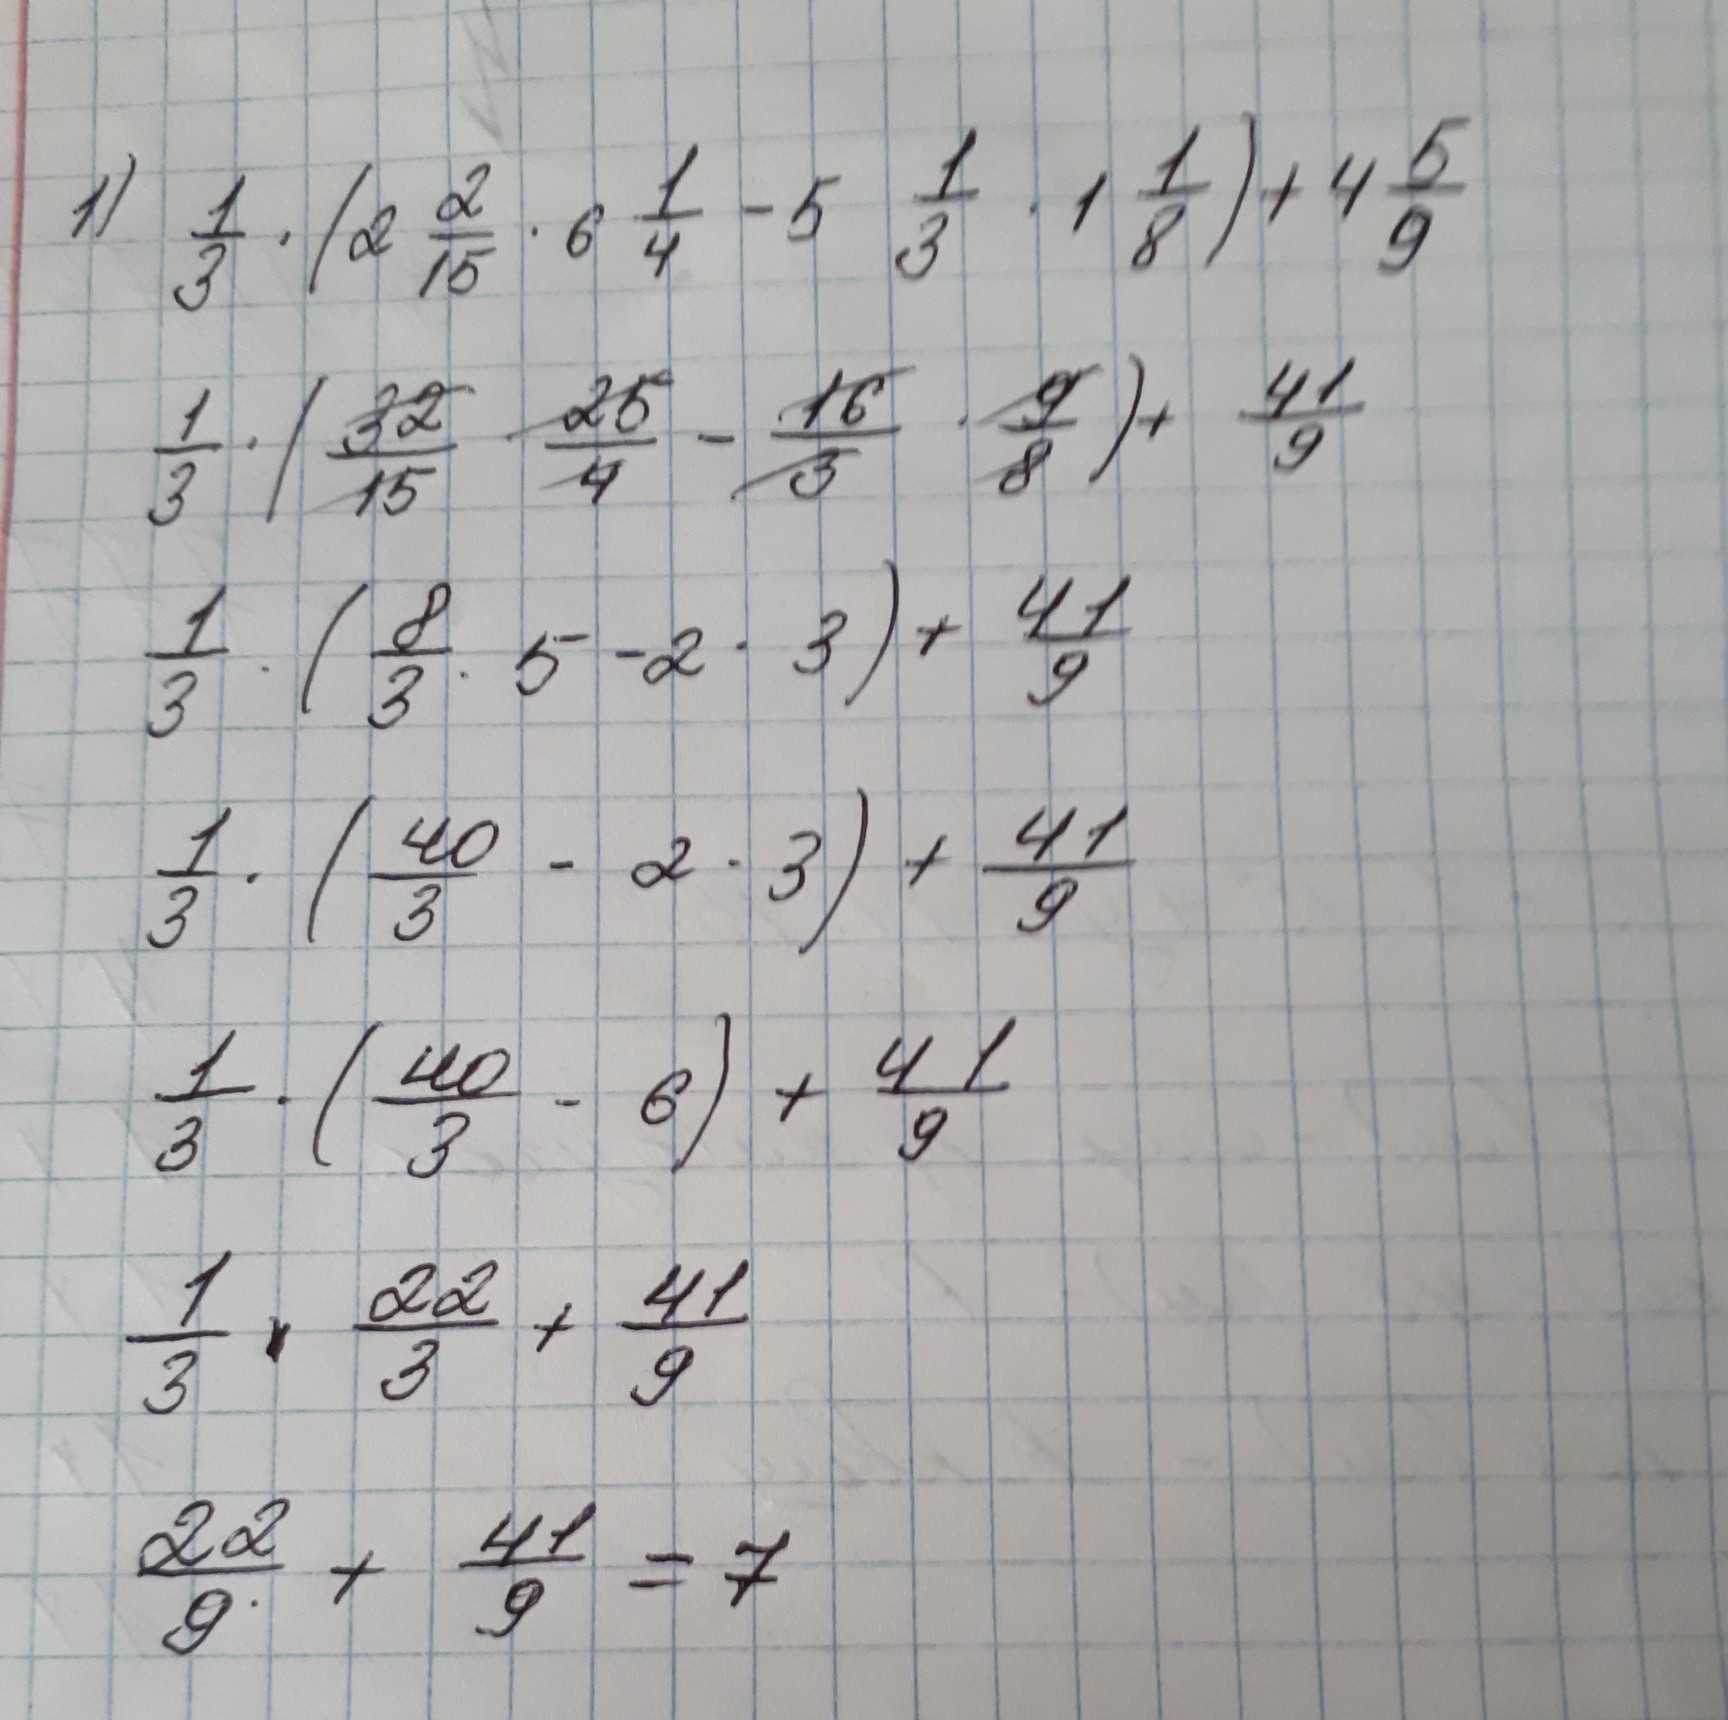 1) 1/3 · (2 2/15 · 6 1/4 - 5 1/3 · 1 1/8) + 4 5/9
1/3 · (32/15 · 25/4 - 16/3 · 9/8) + 41/9
1/3 · (8/3 · 5 - 2 · 3) + 41/9
1/3 · (40/3 - 2 · 3) + 41/9
1/3 · (40/3 - 6) + 41/9
1/3 · 22/3 + 41/9
22/9 + 41/9 = 7